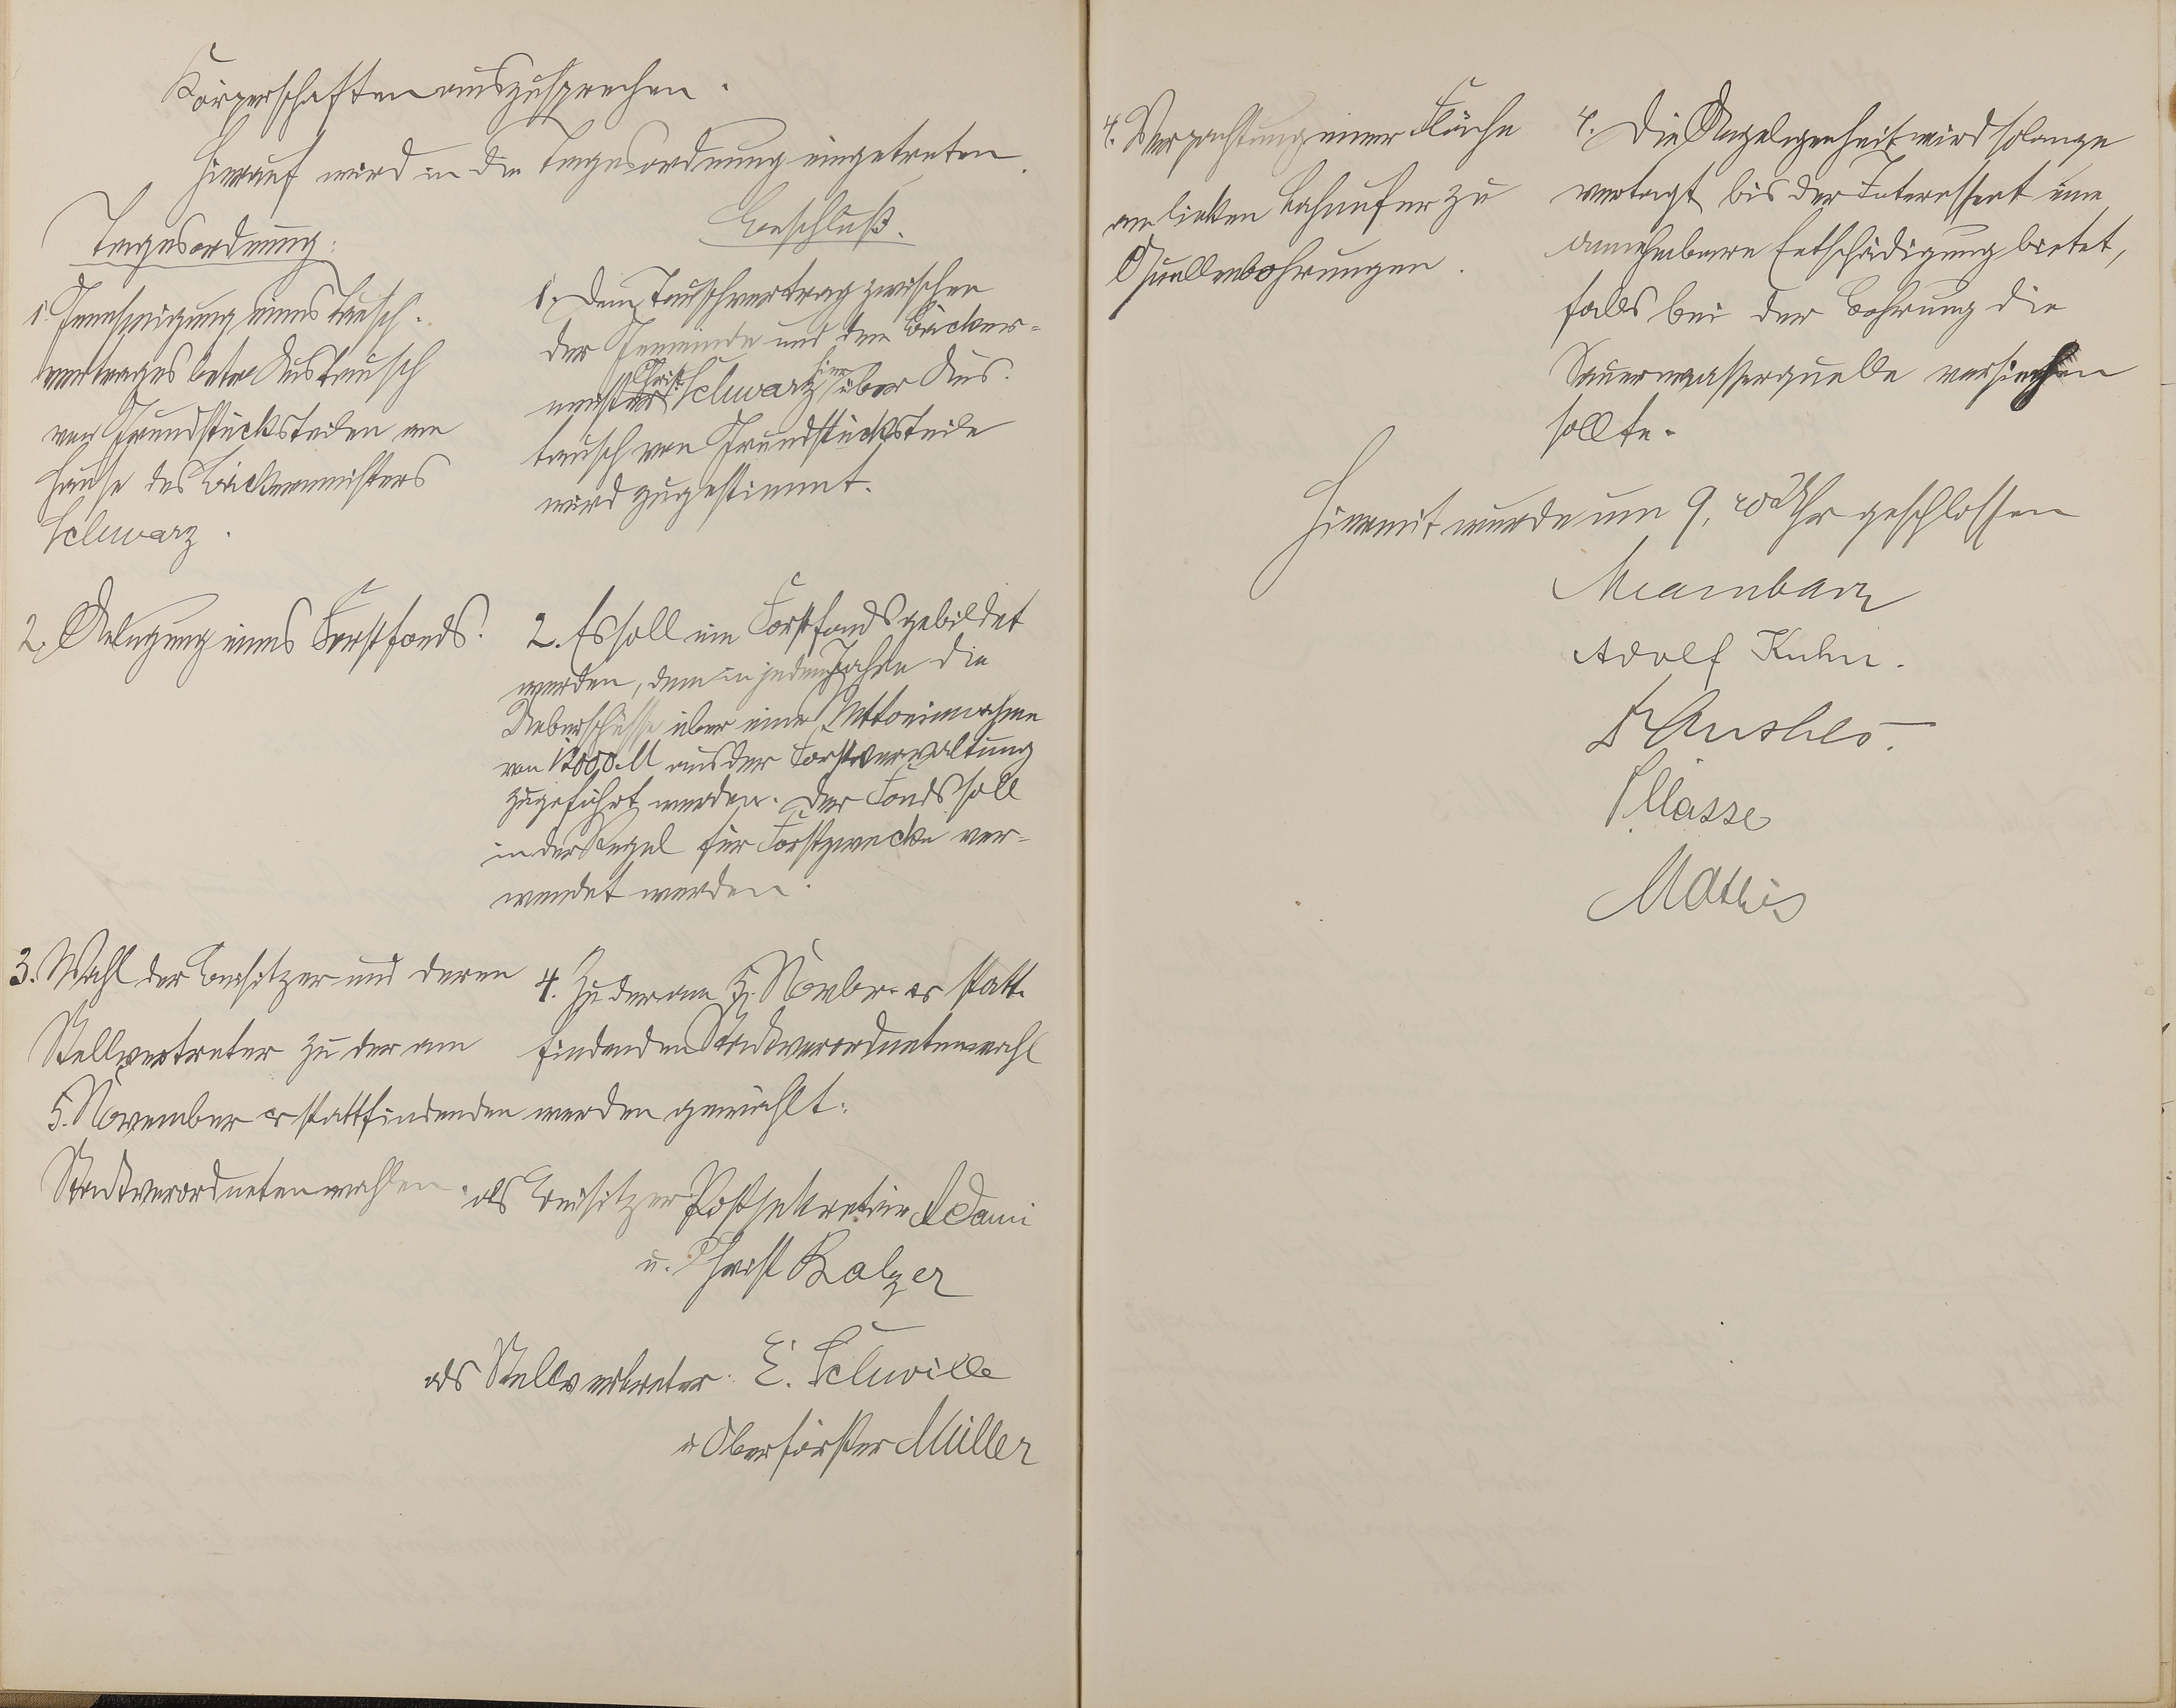 Körperschaften auszusprechen.
Hierauf wird in die Tagesordnung eingetreten.
Tagesordnung:
1. Genehmigung eines Tausch-
vertrages betr. Austausch
von Grundstücksteilen am
Hause des Bäckermeisters
Schwarz.
Beschluß.
1. Dem Tauschvertrag zwischen
der Gemeinde und dem Bäcker-
meister Christ. Schwarz hier über Aus-
tausch von Grundstücksteile
wird zugestimmt.
2. Anlegung eines Forstfonds.
2. Es soll ein Forstfonds gebildet
werden, dem in jedem Jahre die
Ueberschüsse über eine Nettoeinnahme
von 12000 M aus der Forstverwaltung
zugeführt werden. Der Fonds soll
in der Regel für Forstzwecke ver-
wendet werden.
3. Wahl der Beisitzer und deren
Stellvertreter zu der am
5. November cr stattfindenden
Stadtverordnetenwahlen.
4. Zu der am 5. Novbr. cr statt-
findenden Stadtverordnetenwahl
werden gewählt:
als Beisitzer Postsekretär Adami
u. Christ Balzer
als Stellvertreter: E. Schwille
u Oberförster Müller
4. Verpachtung einer Fläche
am linken Lahnufer zu
Quellenbohrungen.
4. Die Angelegenheit wird solange
vertagt bis der Interessent eine
annehmbare Entschädigung bietet,
falls bei der Bohrung die
Sauerwasserquelle versiechen
sollte.
Hiermit wurde um 9,40 Uhr geschlossen
Adolf Kuhn.
Masse
Mathis